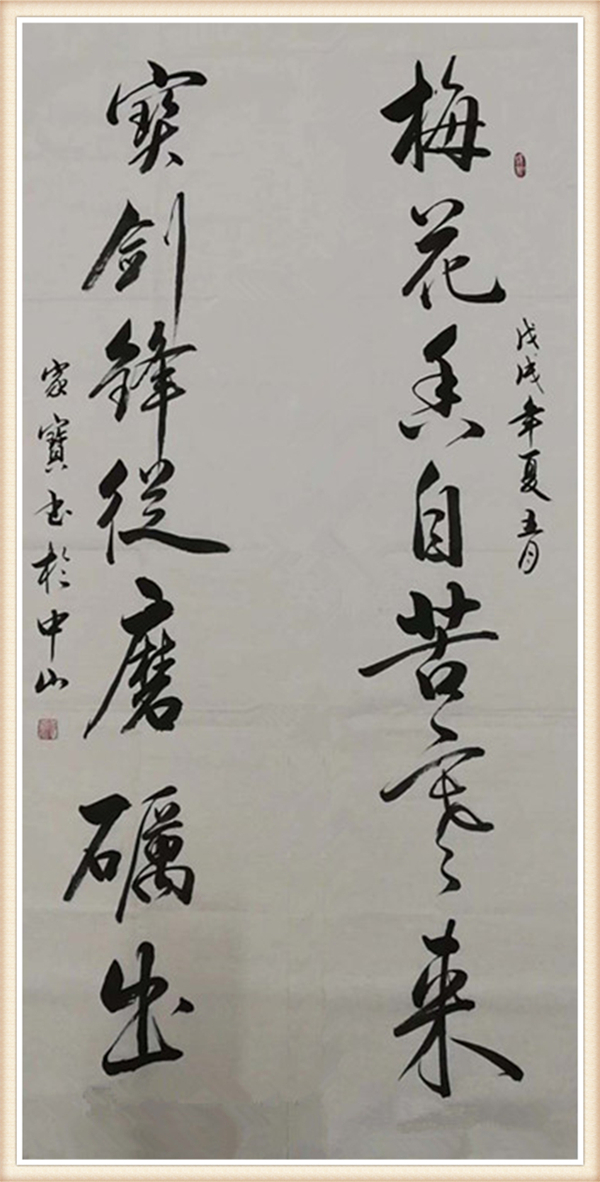 戊戌年夏五月
梅花香自苦寒来
寶剑鋒從磨礪出
家寶书於中山